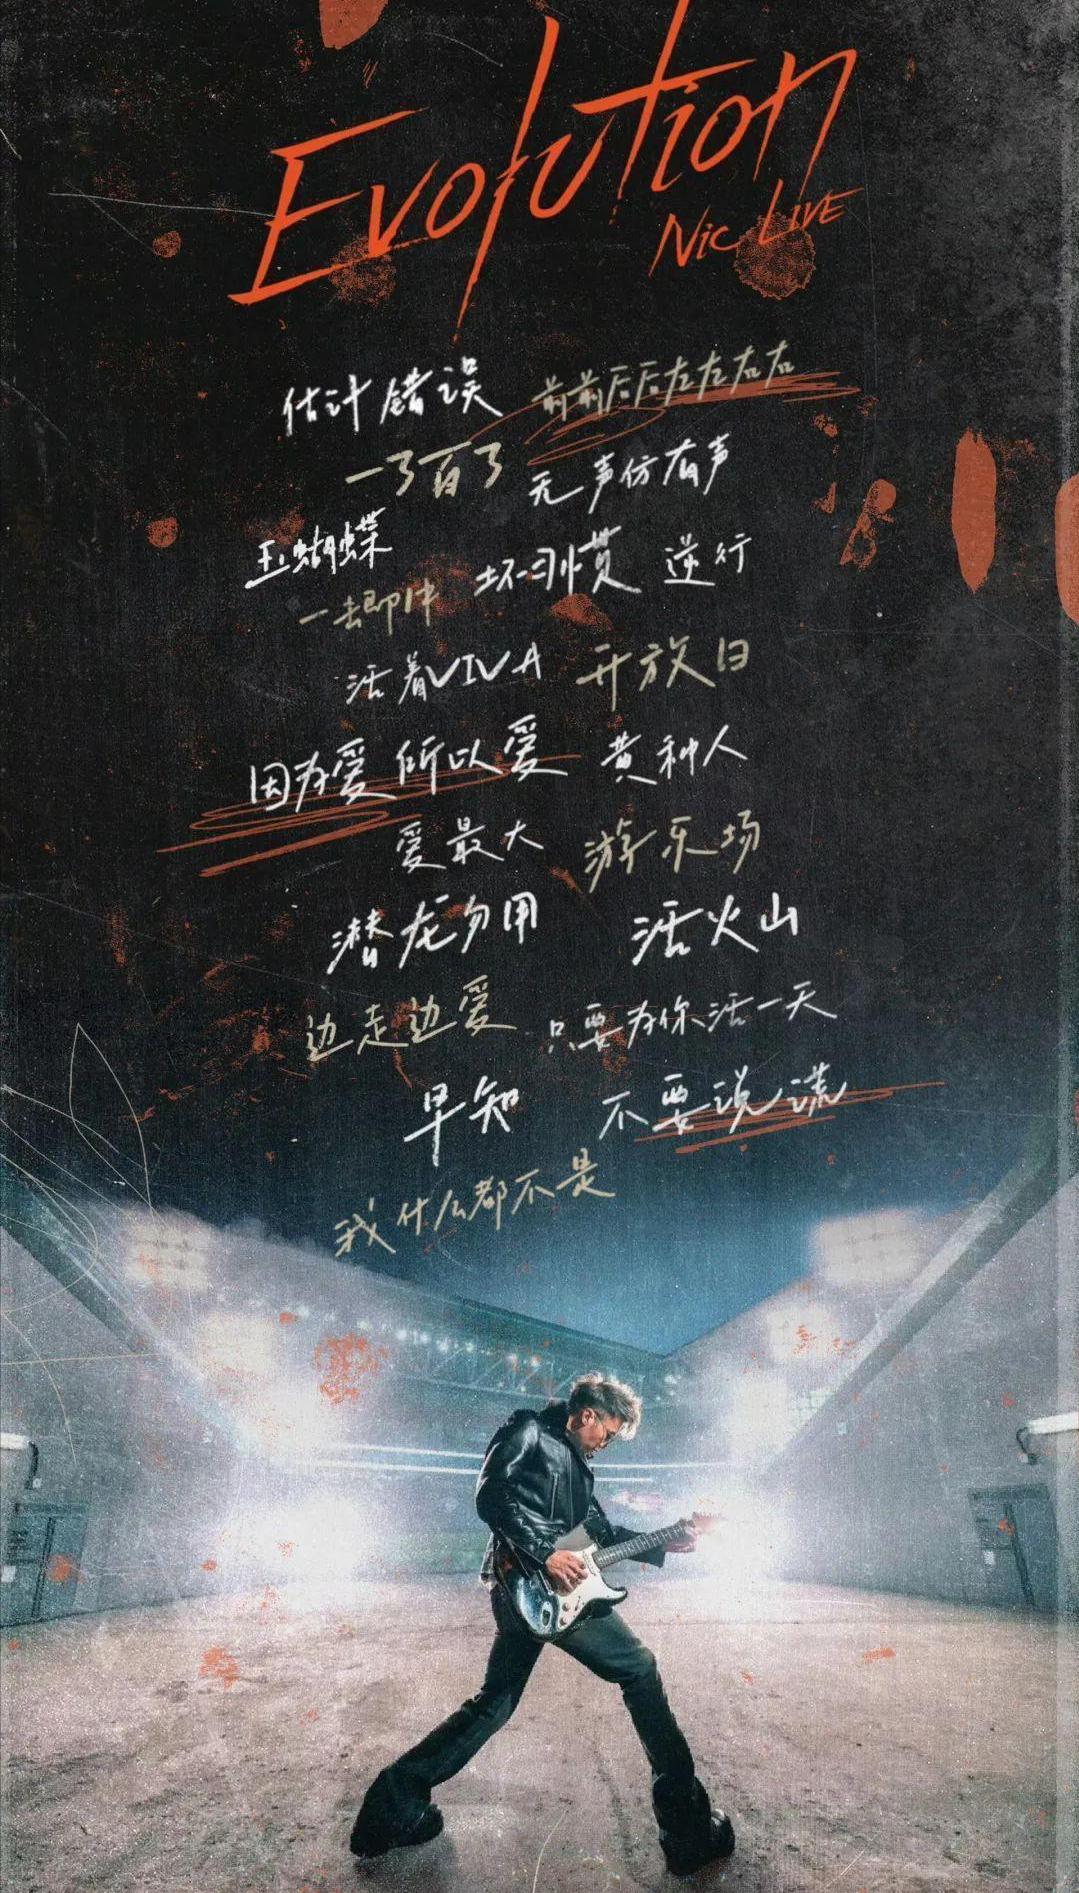 Evolution
Nic LIVE
估计错误 前前后后左左右右
一了百了 无声仿有声
玉蝴蝶
一击即中 坏习惯 逆行
活着VIVA 开放日
因为爱所以爱 黄种人
爱最大 游乐场
潜龙勿用 活火山
边走边爱 只要为你活一天
早知 不要说谎
我什么都不是